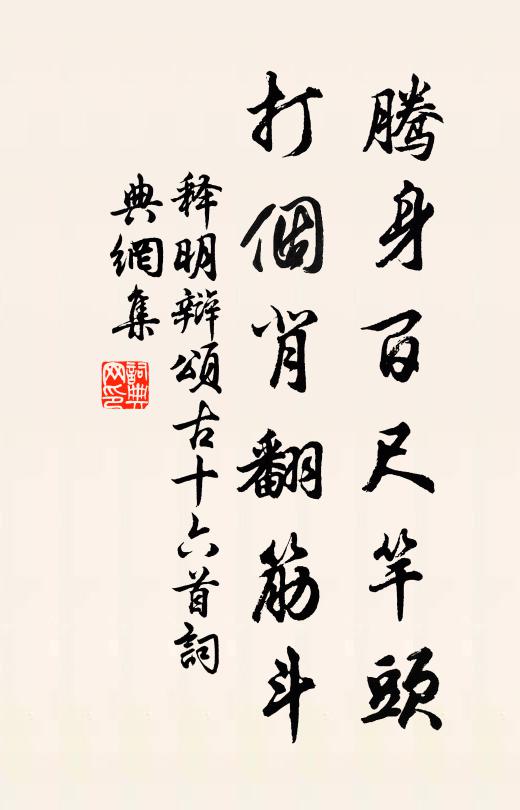 腾身百尺竿頭
打個背翻筋斗
释明辯頌古十六首詞
典網集
詞典
网印